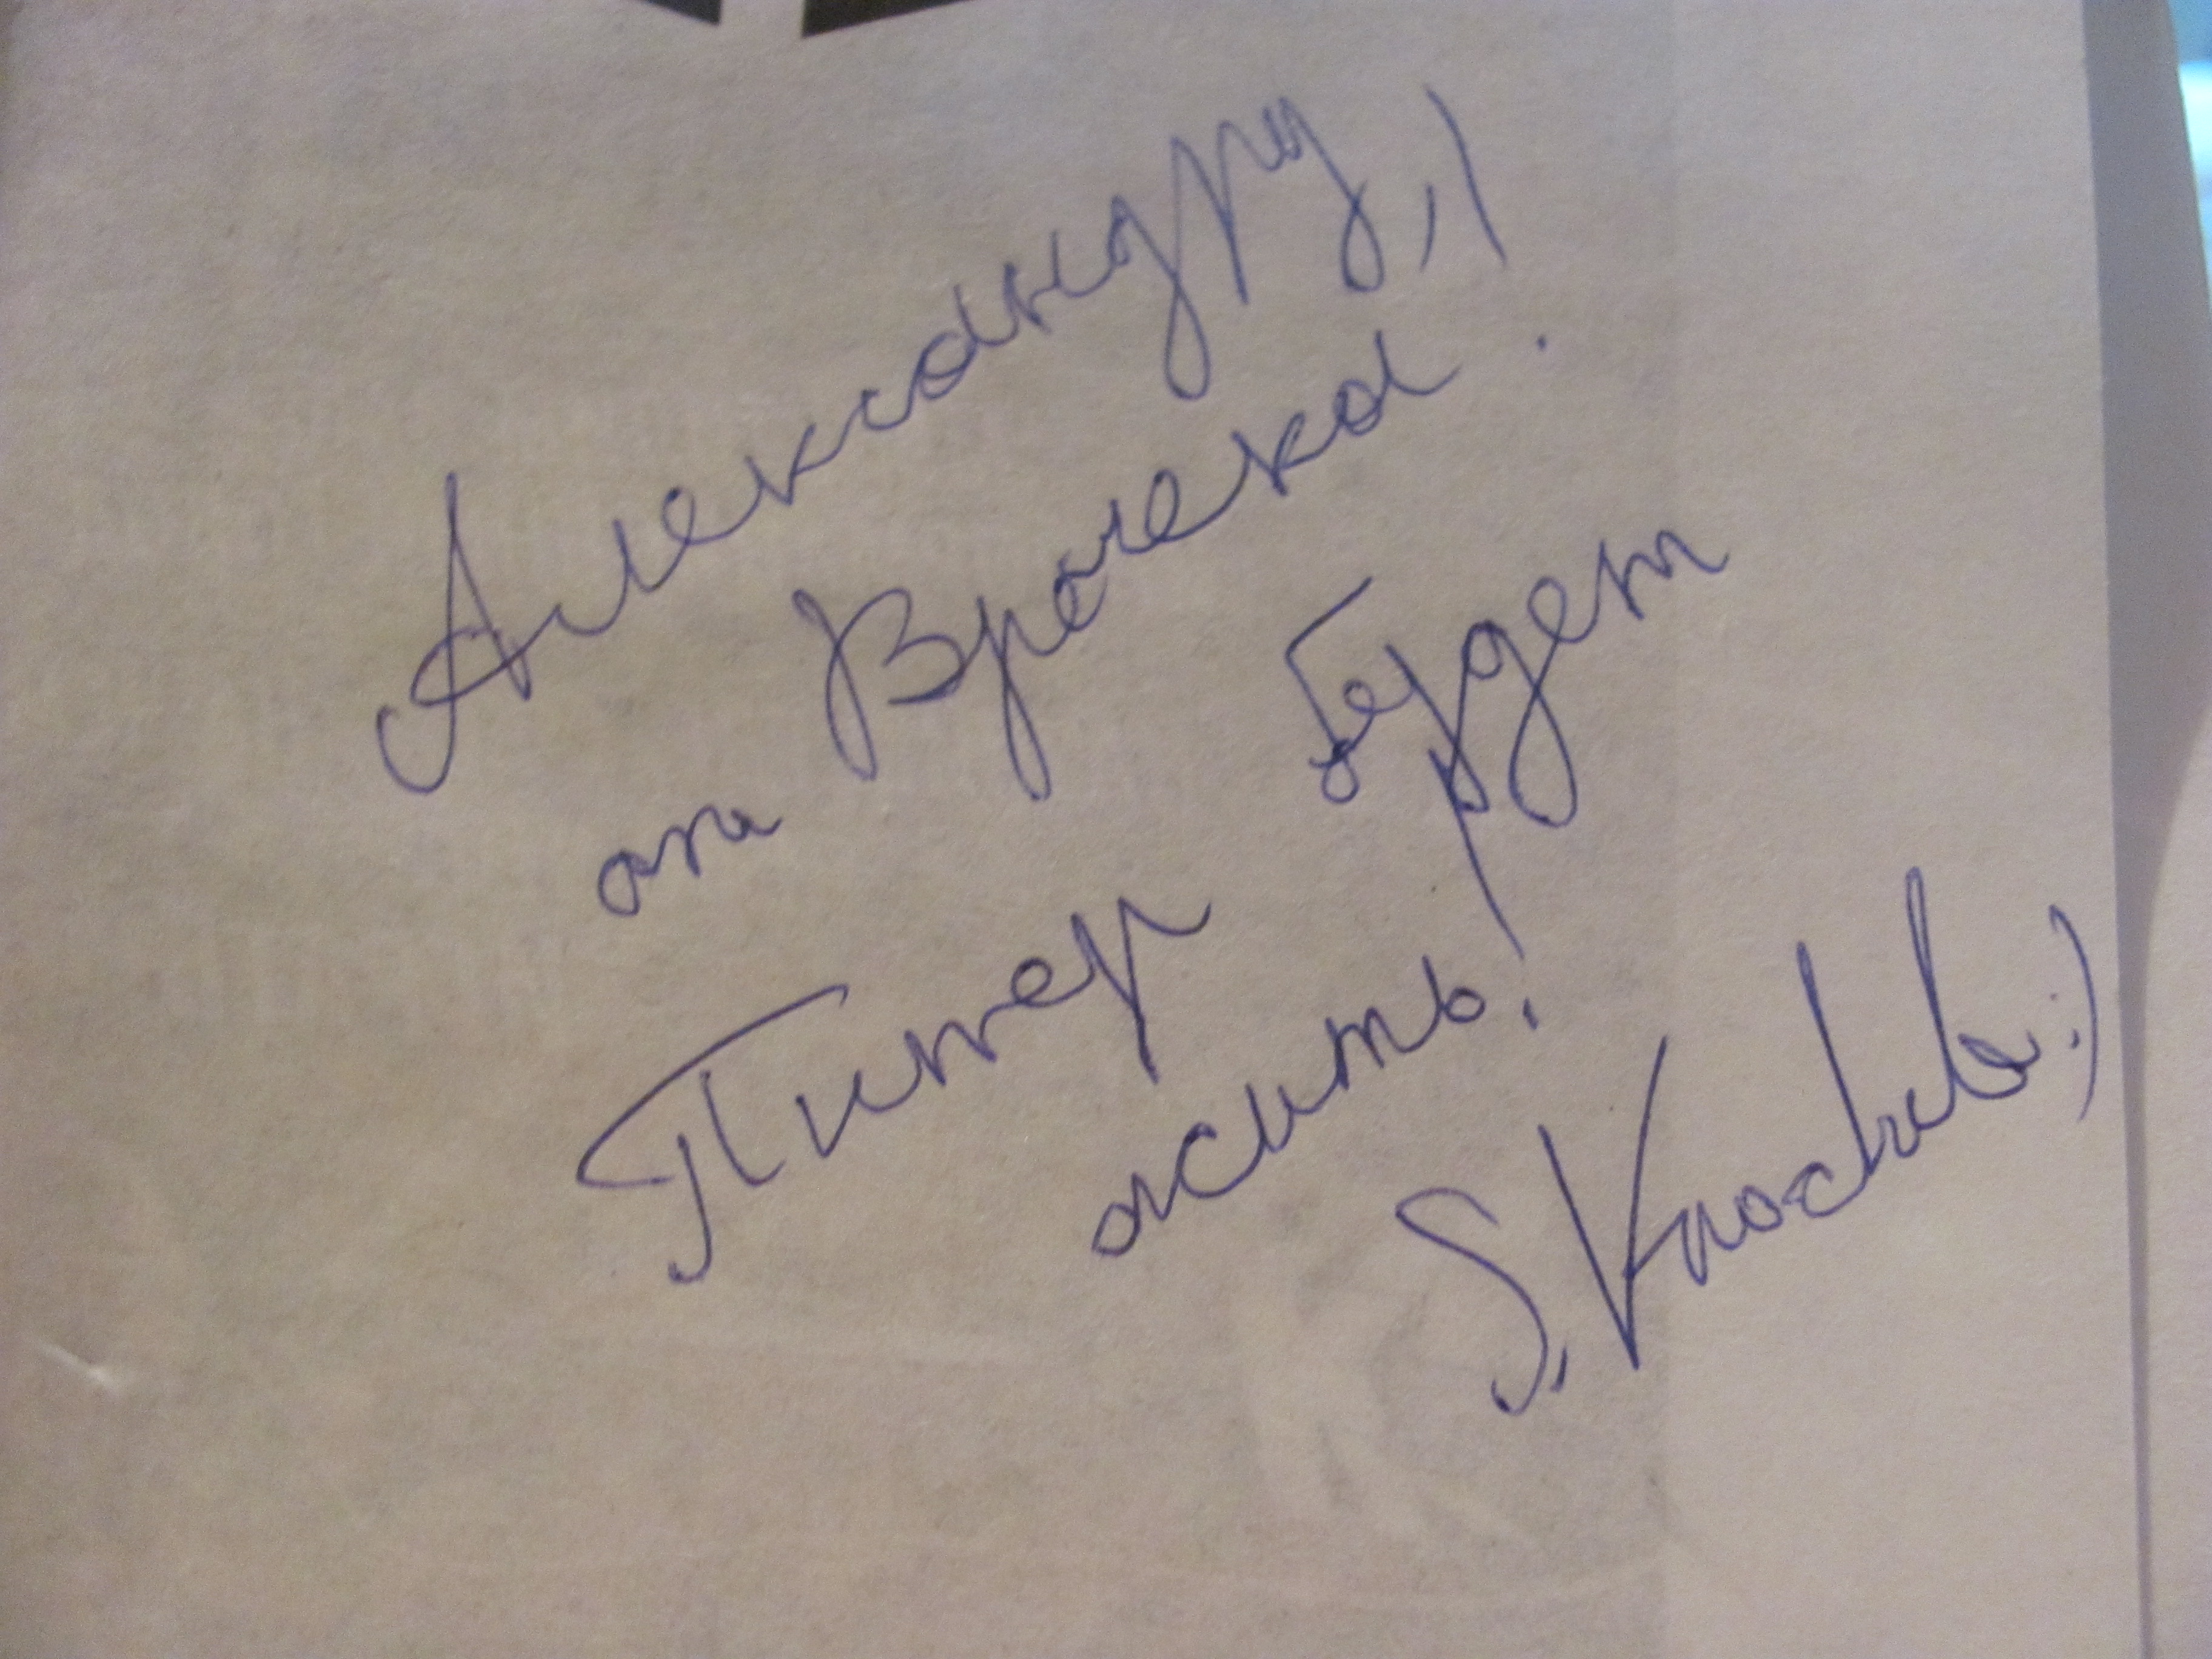 Александру,
от Врочека!
Питер будет
жить!
S. Vrochek :)